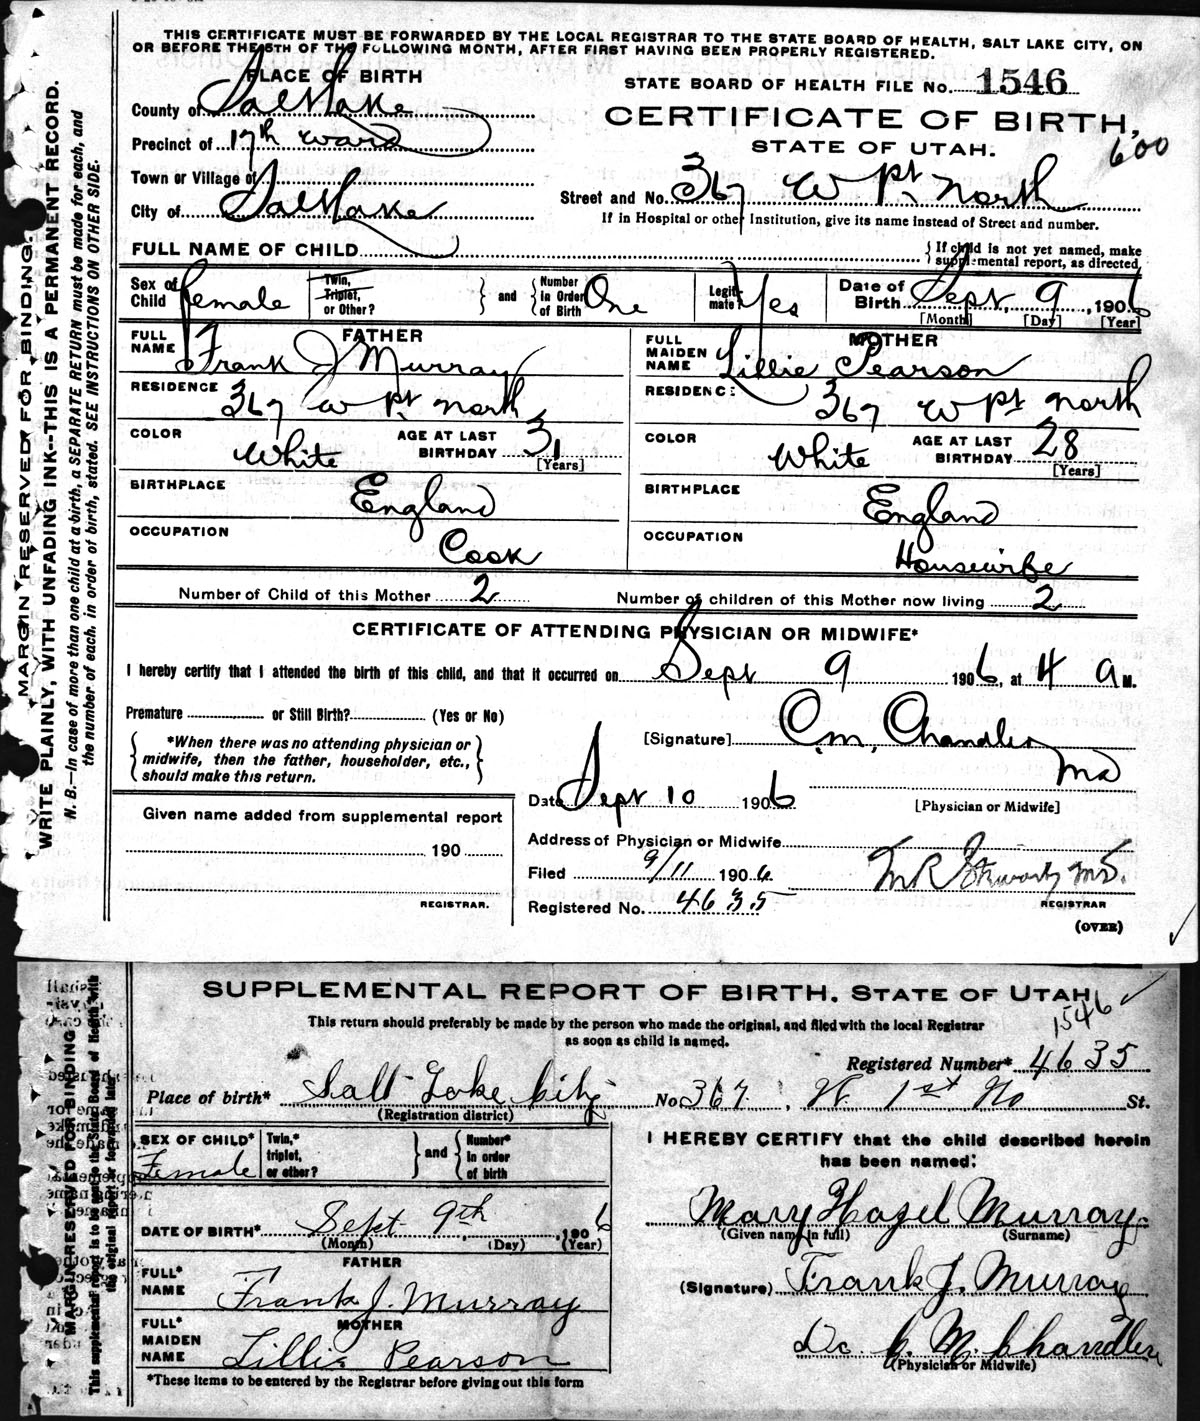 THIS CERTIFICATE MUST BE FORWARDED BY THE LOCAL REGISTRAR TO THE STATE BOARD OF HEALTH, SALT LAKE CITY, ON
OR BEFORE THE 5TH OF THE FOLLOWING MONTH, AFTER FIRST HAVING BEEN PROPERLY REGISTERED.
PLACE OF BIRTH
STATE BOARD OF HEALTH FILE No. 1546
County of Salt Lake
CERTIFICATE OF BIRTH,
Precinct of 17th Ward
STATE OF UTAH.
600
Town or Village of
Street and No. 367 W 1st North
City of Salt Lake
If in Hospital or other Institution, give its name instead of Street and number.
FULL NAME OF CHILD
{ If child is not yet named, make
supplemental report, as directed
Sex of Child Female
Twin, Triplet, or Other?
and
Number in Order of Birth One
Legitimate? Yes
Date of Birth Sept 9, 1906
[Month] [Day] [Year]
FATHER
FULL NAME Frank J Murray
RESIDENCE 367 W 1st North
COLOR White
AGE AT LAST BIRTHDAY 31
[Years]
BIRTHPLACE England
OCCUPATION Cook
MOTHER
FULL MAIDEN NAME Lillie Pearson
RESIDENCE 367 W 1st North
COLOR White
AGE AT LAST BIRTHDAY 28
[Years]
BIRTHPLACE England
OCCUPATION Housewife
Number of Child of this Mother 2
Number of children of this Mother now living 2
CERTIFICATE OF ATTENDING PHYSICIAN OR MIDWIFE*
I hereby certify that I attended the birth of this child, and that it occurred on Sept 9 1906, at 4 a M.
Premature or Still Birth? (Yes or No)
[Signature] C. M. Chandler
MD
*When there was no attending physician or
midwife, then the father, householder, etc.,
should make this return.
Date Sept 10 1906
[Physician or Midwife]
Given name added from supplemental report
190
REGISTRAR.
Address of Physician or Midwife
Filed 9/11 1906
M.D.
Registered No. 4635
REGISTRAR
(OVER)
MARGIN RESERVED FOR BINDING.
WRITE PLAINLY, WITH UNFADING INK--THIS IS A PERMANENT RECORD.
N. B.—In case of more than one child at a birth, a SEPARATE RETURN must be made for each, and
the number of each, in order of birth, stated. SEE INSTRUCTIONS ON OTHER SIDE.
SUPPLEMENTAL REPORT OF BIRTH. STATE OF UTAH
1546
This return should preferably be made by the person who made the original, and filed with the local Registrar
as soon as child is named.
Registered Number* 4635
Place of birth* Salt Lake City No 367, W. 1st No St.
(Registration district)
SEX OF CHILD* Female
Twin,* triplet, or other?
and
Number* in order of birth
I HEREBY CERTIFY that the child described herein
has been named:
Mary Hazel Murray
(Given name in full) (Surname)
DATE OF BIRTH* Sept 9th, 1906
(Month) (Day) (Year)
FATHER
FULL* NAME Frank J. Murray
(Signature) Frank J. Murray
MOTHER
FULL* MAIDEN NAME Lillie Pearson
Dr. C. M. Chandler
(Physician or Midwife)
*These items to be entered by the Registrar before giving out this form
MARGIN RESERVED FOR BINDING
This supplemental report is to be sent to the State Board of Health with
the original report